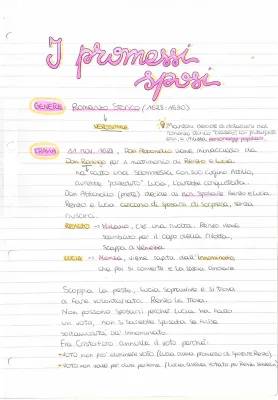 I promessi
sposi
GENERE: Romanzo Storico (1628-1630)
VEROSIMILE
Manzoni decide di
romanzo storico
TRAMA: 11 nov. 1628, Don Abbondio viene minacciato da
Don Rodrigo per il matrimonio di Renzo e Lucia
ha fatto una scommessa con suo cugino Attilio,
avrebbe "posseduto" Lucia, l'avrebbe conquistata.
Don Abbondio (prete) decise di non sposare Renzo e Lucia
Renzo e Lucia cercano di sposarsi di sorpresa, senza
riuscirci.
RENZO → Milano, c'è una rivolta. Renzo viene
scambiato per il capo della rivolta.
Scappa a Venezia
LUCIA → Monza, viene rapita dall'Innominato,
che poi si converte e la lascia andare
Scoppia la peste, Lucia sopravvive e si trova
a fare volontariato. Renzo la trova.
Non possono sposarsi perché Lucia ha fatto
un voto, non si sarebbe sposata se fosse
salvata dall'Innominato.
Fra Cristoforo annulla il voto perché:
VOTO non può eliminare voto (Lucia aveva promesso di sposare Renzo)
VOTO non vale per due persone (Lucia